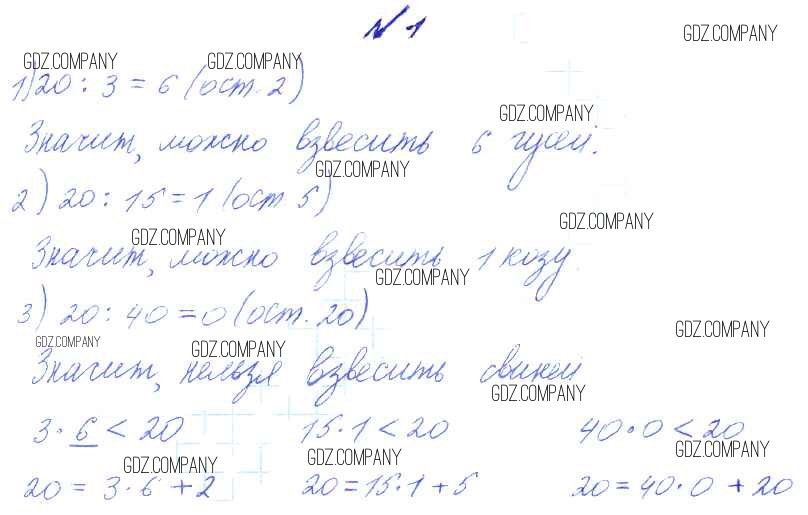 № 1
GDZ.COMPANY
GDZ.COMPANY GDZ.COMPANY
1) 20 : 3 = 6 (ост. 2)
GDZ.COMPANY
Значит, можно взвесить 6 гусей.
GDZ.COMPANY
2) 20 : 15 = 1 (ост. 5)
GDZ.COMPANY
GDZ.COMPANY
Значит, можно взвесить 1 козу.
GDZ.COMPANY
3) 20 : 40 = 0 (ост. 20)
GDZ.COMPANY
GDZ.COMPANY GDZ.COMPANY
Значит, нельзя взвесить свиней
GDZ.COMPANY
3 · 6 < 20 15 · 1 < 20 40 · 0 < 20
GDZ.COMPANY GDZ.COMPANY GDZ.COMPANY
20 = 3 · 6 + 2 20 = 15 · 1 + 5 20 = 40 · 0 + 20